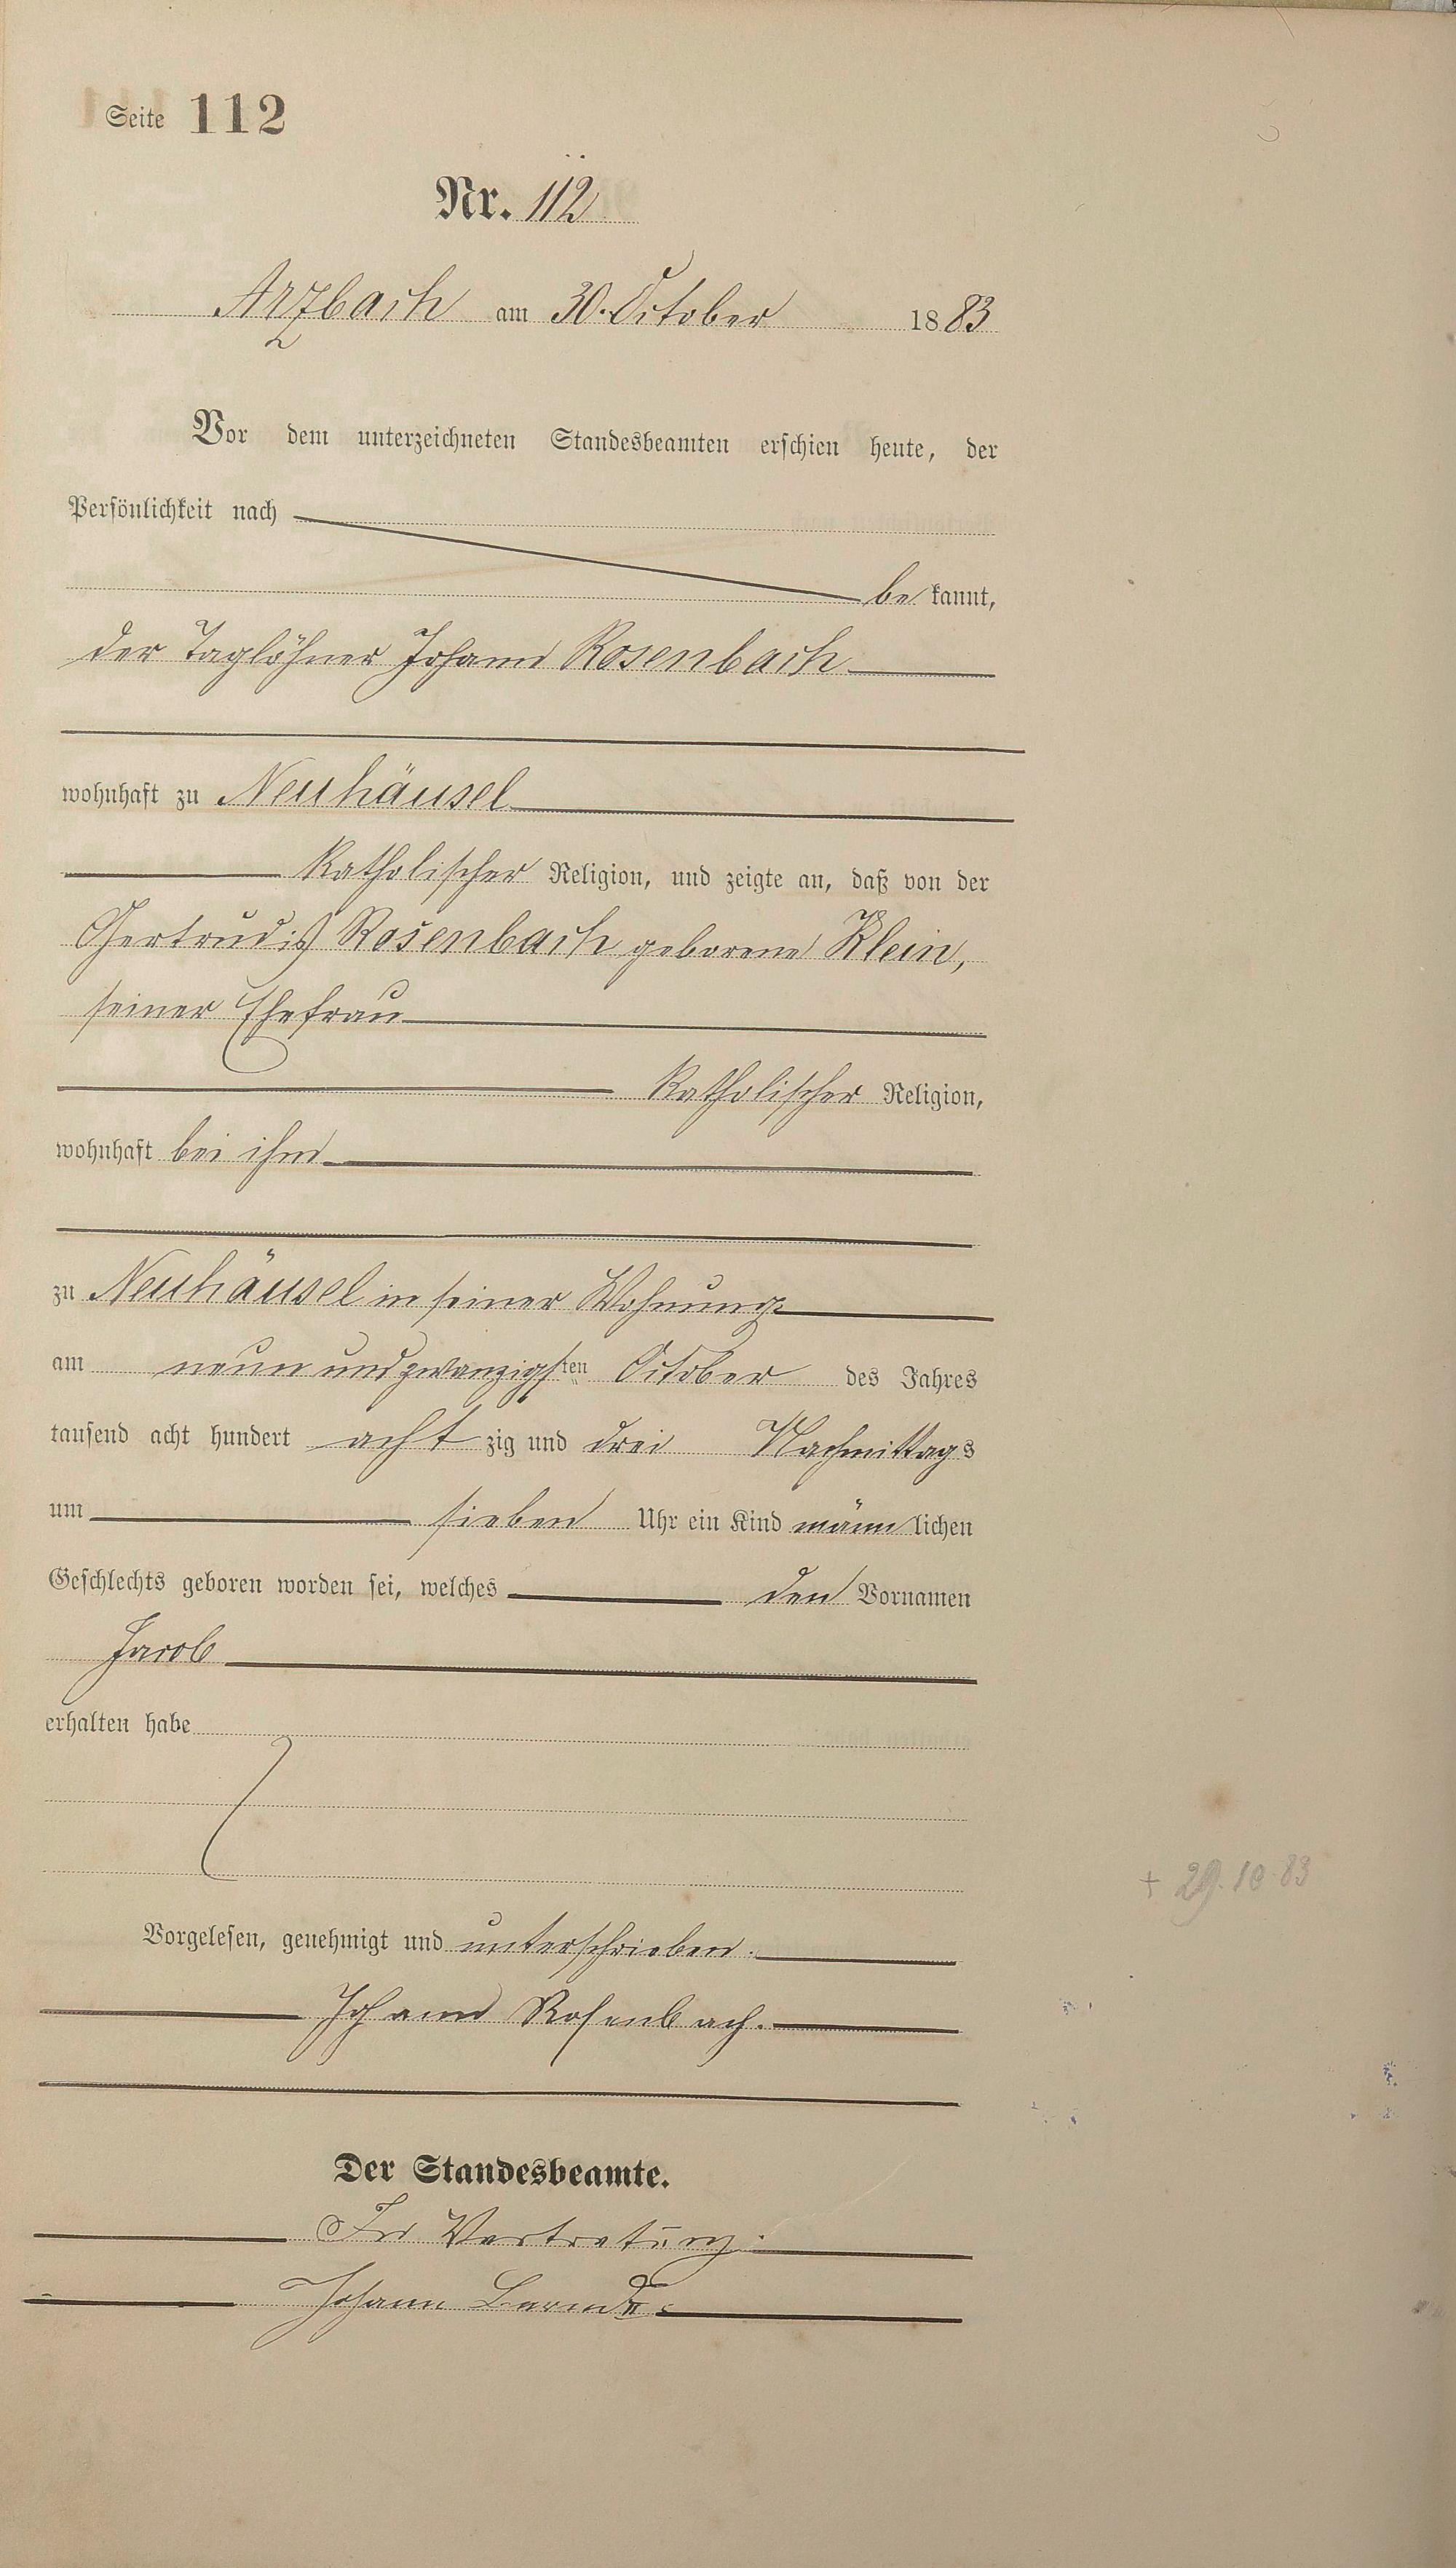 Seite 112
Nr. 112
Arzbach am 30. October 1883
Vor dem unterzeichneten Standesbeamten erschien heute, der
Persönlichkeit nach
be kannt,
der Taglöhner Johann Rosenbach
wohnhaft zu Neuhäusel
katholischer Religion, und zeigte an, daß von der
Gertrudis Rosenbach geborene Klein,
seiner Ehefrau
katholischer Religion,
wohnhaft bei ihm
zu Neuhäusel in seiner Wohnung
am neun und zwanzigsten October des Jahres
tausend acht hundert acht zig und drei Nachmittags
um sieben Uhr ein Kind männ lichen
Geschlechts geboren worden sei, welches den Vornamen
Jacob
erhalten habe
+ 29.10.83
Vorgelesen, genehmigt und unterschrieben.
Johann Rosenbach.
Der Standesbeamte.
In Vertretung:
Johann